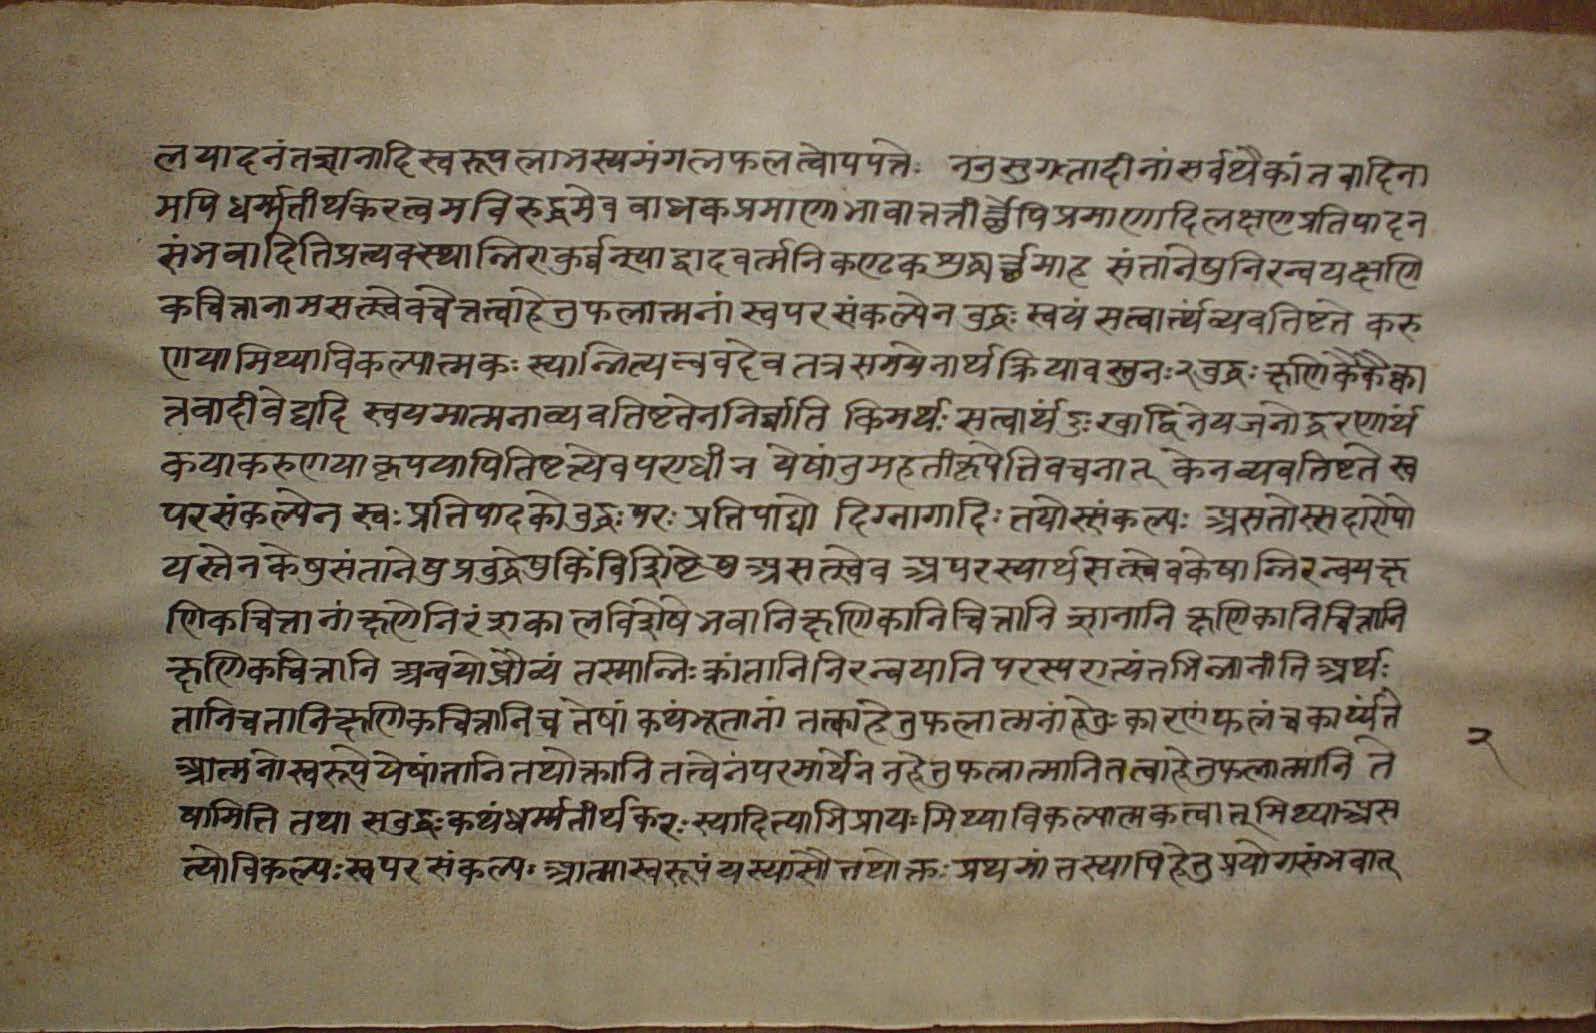 लयादनंतज्ञानादिस्वरूपलाभस्यमंगलफलत्वोपपत्तेः ननुसुगतादीनांसर्वथैकांतवादिना
मपि धर्म्मतीर्थकरत्वमविरुद्धमेव बाधकप्रमाणाभावात्तत्तीर्थेपिप्रमाणादिलक्षणप्रतिपादन
संभवादितिप्रत्यवस्थान्निराकुर्वन्स्याद्वादवर्त्मनिकण्टकशुद्ध्यर्थमाह संतानेषुनिरन्वयक्षणि
कचित्तानामसत्स्वेवचेत्तत्वाहेतुफलात्मनां स्वपरसंकल्पेन बुद्धः स्वयं सत्वार्त्थंव्यवतिष्टते करु
णयामिथ्याविकल्पात्मकः स्यान्नित्यत्ववदेव तत्र समयेनार्थक्रियावस्तुनः २ बुद्धः क्षणिकैकैका
न्तवादीवेद्यदि स्वयमात्मनाव्यवतिष्टतेननिर्वाति किमर्थः सत्वार्थंदुःखाद्विनेयजनोद्धरणार्थं
कयाकरुणयाकृपयापितिष्टत्येवपराधीन येषांतुमहतीकृपेतिवचनात् केनव्यवतिष्टते स्व
परसंकल्पेन स्वः प्रतिपादकोबुद्धः परः प्रतिपाद्यो दिग्नागादिः तयोस्संकल्पः असतोस्सदारोपो
यस्तेनकेषुसंतानेषुप्रबुद्धेषुकिंविशिष्टेषुअसत्स्वेव अपरस्यार्थसत्स्वेवकेषान्निरन्वयक्ष
णिकचित्तानां क्षणेनिरंशकालविशेषेभवानिक्षणिकानिचित्तानि ज्ञानानि क्षणिकानिचित्तानि
क्षणिकचित्तानि अन्वयोध्रौव्यं तस्मान्निःक्रांतानिनिरन्वयानि परस्परात्यंतभिन्नानीति अर्थः
तानिचतानिक्षणिकचित्तानिच तेषां कथंभूतानां तत्वाहेतुफलात्मनांहेतुःकारणंफलंचकार्य्यंते
आत्मनोस्वरूपेयेषांतानितथोक्तानि तत्त्वेनपरमार्थेन नहेतुफलात्मानितत्वाहेतुफलात्मानि ते
षामिति तथा सबुद्धःकथंधर्म्मतीर्थकरः स्यादित्याभिप्रायः मिथ्याविकल्पात्मकत्वात् मिथ्याअस
त्योविकल्पःस्वपरसंकल्पः आत्मास्वरूपंयस्यासौतथोक्तः प्रथमांतस्यापिहेतुप्रयोगसंभवात्
२